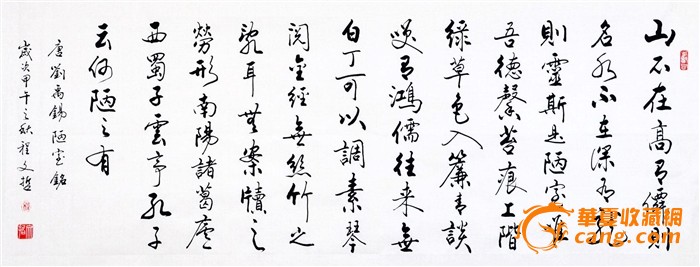 山不在高有僊則
名水不在深有龍
則靈斯是陋室唯
吾德馨苔痕上階
綠草色入簾青談
笑有鴻儒往来無
白丁可以調素琴
閱金經無絲竹之
亂耳無案牘之
勞形南陽諸葛廬
西蜀子雲亭孔子
云何陋之有
唐劉禹錫陋室銘
歲次甲午之秋程文
華夏收藏网
cang.com